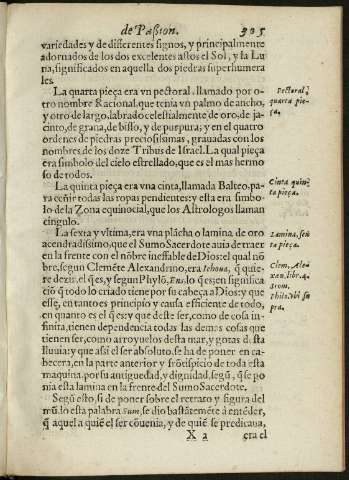 de Passion. 305
variedades y de differentes signos, y principalmente
adornados de los dos excelentes astos el Sol, y la Lu
na, significados en aquella dos piedras superhumera
les.
La quarta pieça era vn pectoral, llamado por o-
tro nombre Racional, que tenia vn palmo de ancho,
y otro de largo, labrado celestialmente de oro, de ja-
cinto, de grana, de bisso, y de purpura; y en el quatro
ordenes de piedras preciosissimas, grauadas con los
nombres de los doze Tribus de Israel. La qual pieça
era simbolo del cielo estrellado, que es el mas hermo
so de todos.
Pectoral,
quarta pie-
ça.
La quinta pieça era vna cinta, llamada Balteo, pa-
ra ceñir todas las ropas pendientes: y esta era simbo-
lo de la Zona equinocial, que los Astrologos llaman
cingulo.
Cinta quin-
ta pieça.
La sexta y vltima, era vna plãcha o lamina de oro
acendradissimo, que el Sumo Sacerdote auia de traer
en la frente con el nõbre ineffable de Dios: el qual nõ
bre, segun Clemẽte Alexandrino, era Iehoua, q̃ quie-
re dezir, el que es, y segun Phylõ, Ens, lo que es; en significa
ciõ q̃ todo lo criado tiene por su cabeça a Dios: y que
esse, en tanto es principio y causa efficiente de todo,
en quanto es el que es: y que deste ser, como de cosa in-
finita, tienen dependencia todas las demas cosas que
tienen ser, como arroyuelos desta mar, y gotas desta
lluuia: y que assi el ser absoluto, se ha de poner en ca-
becera, en la parte anterior y frõtispicio de toda esta
maquina, por su antiguedad, y dignidad, segũ, q̃ se po
nia esta lamina en la frente del Sumo Sacerdote.
Lamina, sex
ta pieça.
Clem. Ale-
Philo. vbi su
pra.
Segũ esto, si de poner sobre el retrato y figura del
mũ. lo esta palabra Sum, se dio bastãtemẽte à entẽder,
q̃ aquel a quiẽ el ser cõuenia, y de quiẽ se predicaua,
X 2 era el